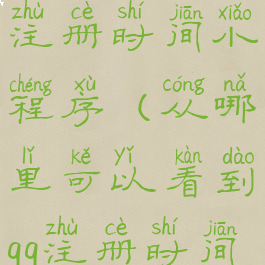 zhù cè shí jiān xiǎo
注册时间小
chéng xù cóng nǎ
程序（从哪
lǐ kě yǐ kàn dào
里可以看到
zhù cè shí jiān
qq注册时间